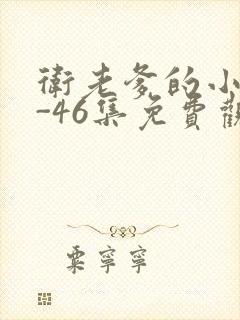 衛老爹的小
-46集免費觀
粟寧寧